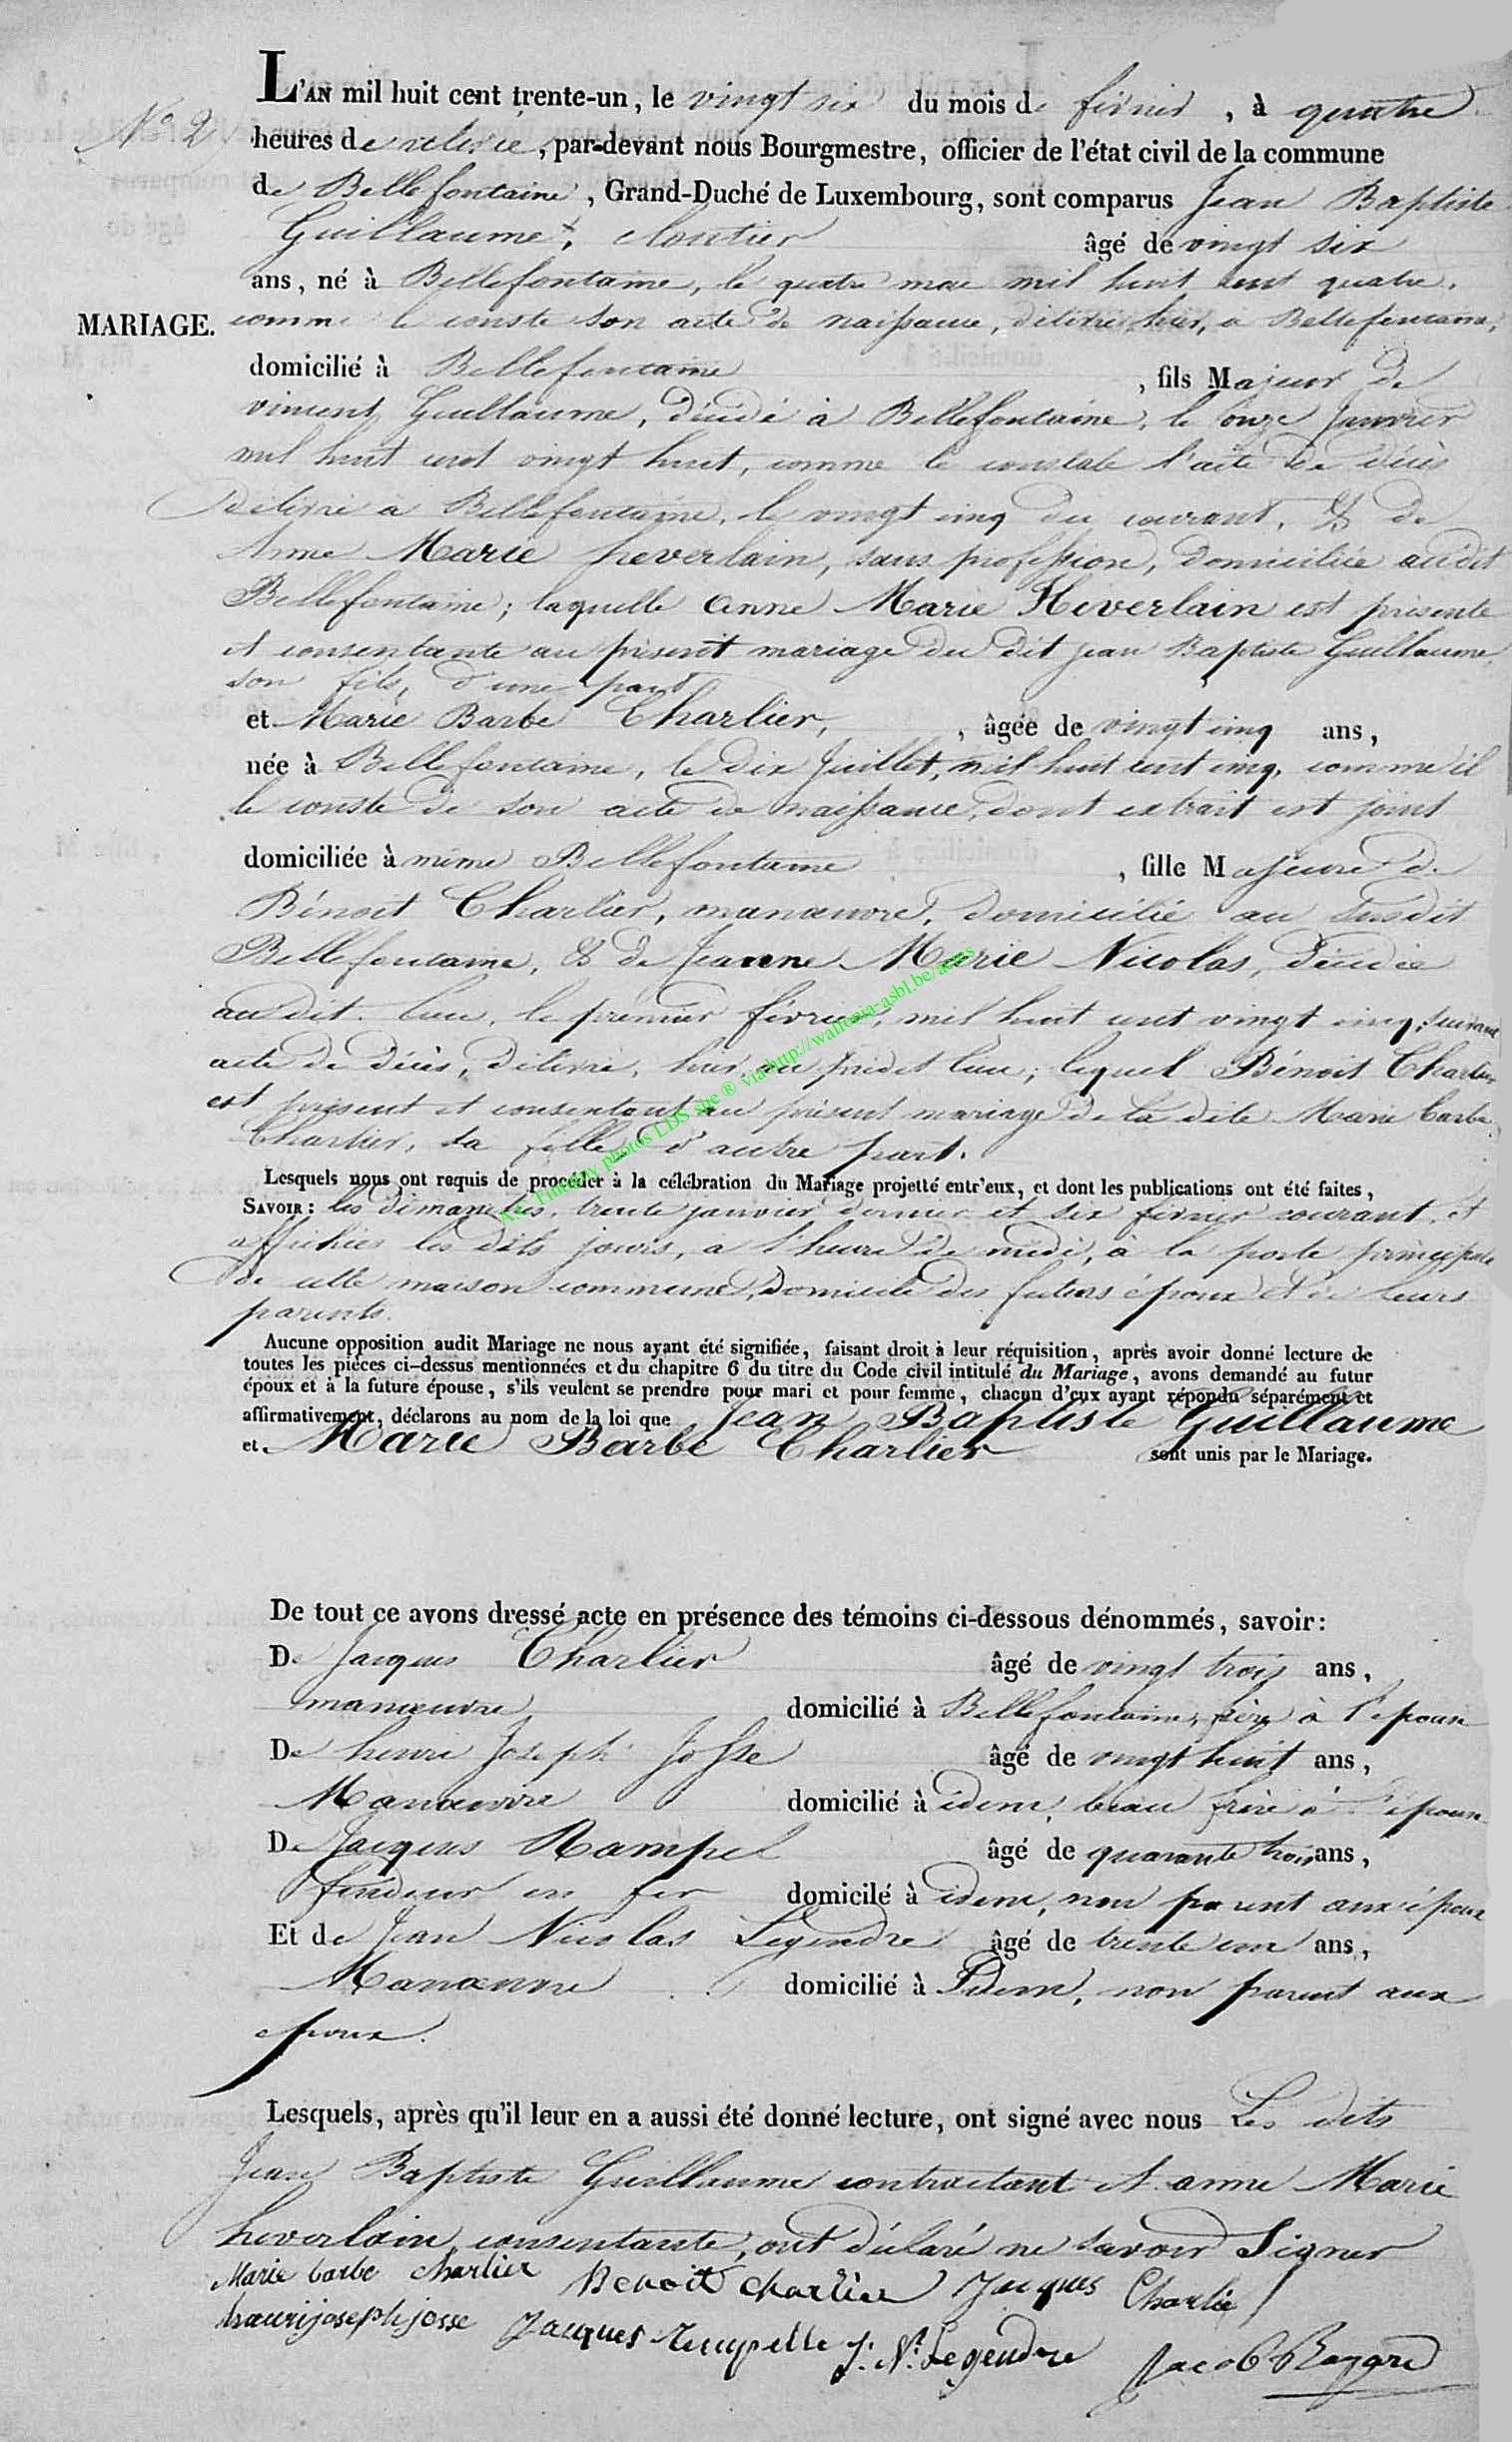 L'AN mil huit cent trente-un, le vingt six du mois de février, à quatre
N° 2
heures de relevée, par-devant nous Bourgmestre, officier de l'état civil de la commune
de Bellefontaine, Grand-Duché de Luxembourg, sont comparus Jean Baptiste
Guillaume, cloutier âgé de vingt six
ans, né à Bellefontaine, le quatre mai mil huit cent quatre,
MARIAGE.
comme le conste son acte de naissance, délivré hier, à Bellefontaine,
domicilié à Bellefontaine, fils Majeur de
vincent Guillaume, décédé à Bellefontaine, le onze Janvier
mil huit cent vingt huit, comme le constate l'acte de décès
délivré à Bellefontaine, le vingt cinq du courant, & de
Anne Marie heverlain, sans profession, domiciliée audit
Bellefontaine; laquelle anne Marie Heverlain est présente
et consentante au présent mariage du dit jean Baptiste Guillaume
son fils, d'une part
et Marie Barbe Charlier, , âgée de vingt cinq ans,
née à Bellefontaine, le dix Juillet, mil huit cent cinq, comme il
le conste de son acte de naissance, dont extrait est joint
domiciliée à même Bellefontaine, fille Majeure de
Bénoit Charlier, manœuvre, domicilié au susdit
Bellefontaine, & de Jeanne Marie Nicolas, décédée
audit lieu, le premier février, mil huit cent vingt cinq, suivant
acte de décès, délivré, hier, au prédit lieu; lequel Bénoit Charlier
est présent et consentant au présent mariage de la dite Marie barbe
Charlier, sa fille d'autre part.
A.C. Tintigny photos LDS site ® via http://wallonia-asbl.be/actes
Lesquels nous ont requis de procéder à la célébration du Mariage projetté entr'eux, et dont les publications ont été faites,
SAVOIR: les dimanches, trente janvier dernier et six février courant, et
affichées les dits jours, à l'heure de midi, à la porte principale
de cette maison commune, domicile des futurs époux et de leurs
parents.
Aucune opposition audit Mariage ne nous ayant été signifiée, faisant droit à leur réquisition, après avoir donné lecture de
toutes les pièces ci-dessus mentionnées et du chapitre 6 du titre du Code civil intitulé du Mariage, avons demandé au futur
époux et à la future épouse, s'ils veulent se prendre pour mari et pour femme, chacun d'eux ayant répondu séparément et
affirmativement, déclarons au nom de la loi que Jean Baptiste Guillaume
et Marie Barbe Charlier sont unis par le Mariage.
De tout ce avons dressé acte en présence des témoins ci-dessous dénommés, savoir:
De Jacques Charlier âgé de vingt trois ans,
manœuvre domicilié à Bellefontaine, frère à l'épouse
De henri Joseph Josse âgé de vingt huit ans,
Manœuvre domicilié à idem, beau frère à l'épouse
De Jacques Rampel âgé de quarante trois ans,
fendeur en fer domicilé à idem, non parent aux époux
Et de Jean Nicolas Legendre âgé de trente un ans,
Manœuvre domicilié à Idem, non parent aux
époux.
Lesquels, après qu'il leur en a aussi été donné lecture, ont signé avec nous Les dits
Jean Baptiste Guillaume contractant et anne Marie
heverlain, consentante, ont déclaré ne savoir Signer
Marie barbe charlier Benoit charlier Jacques Charlie
haurijosephjosse Jacques J. N. Legendre Jacob